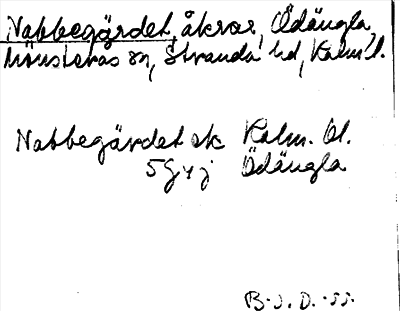 Nabbegärdet, åkrar, Ödängla,
Mönsterås sn, Stranda hd, Kalm. l.
Nabbegärdet åk Kalm. Ol.
5G4j Ödängla
B-J. D. -55.